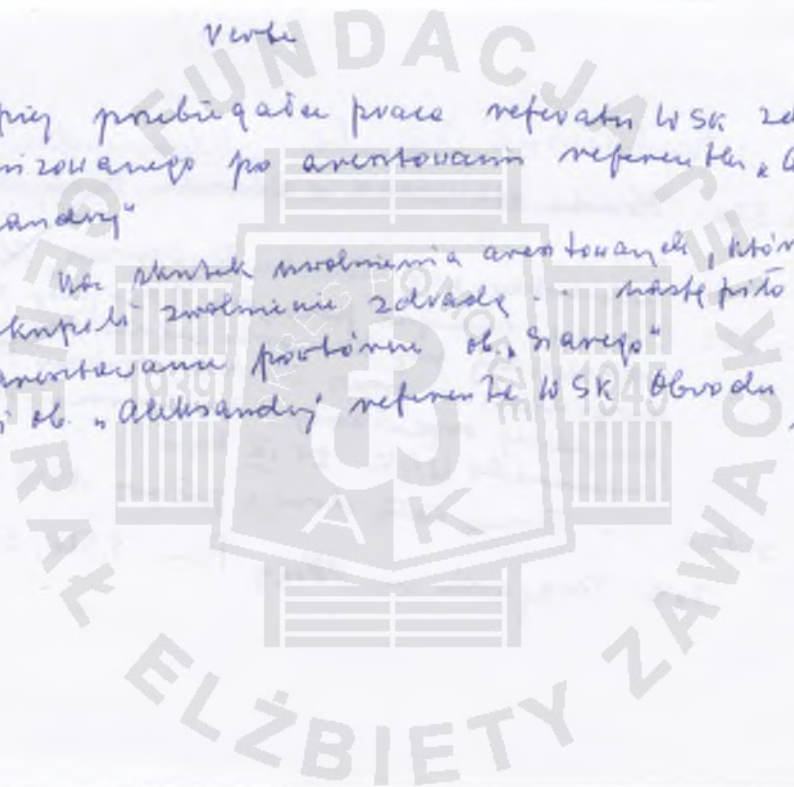 Verte
piej przebiegała praca referatu WSK zd
nizowanego po aresztowaniu referentki „A
andry"
Na skutek uwolnienia aresztowanych, któr
kupili zwolnienie zdradą .. nastąpiło
aresztowanie powtórne ob. „Szarego"
j ob. „Aleksandry" referentki WSK Obwodu
FUNDACJA GENERAŁ ELŻBIETY ZAWACKIEJ
POMORZE
1939 1945
AK